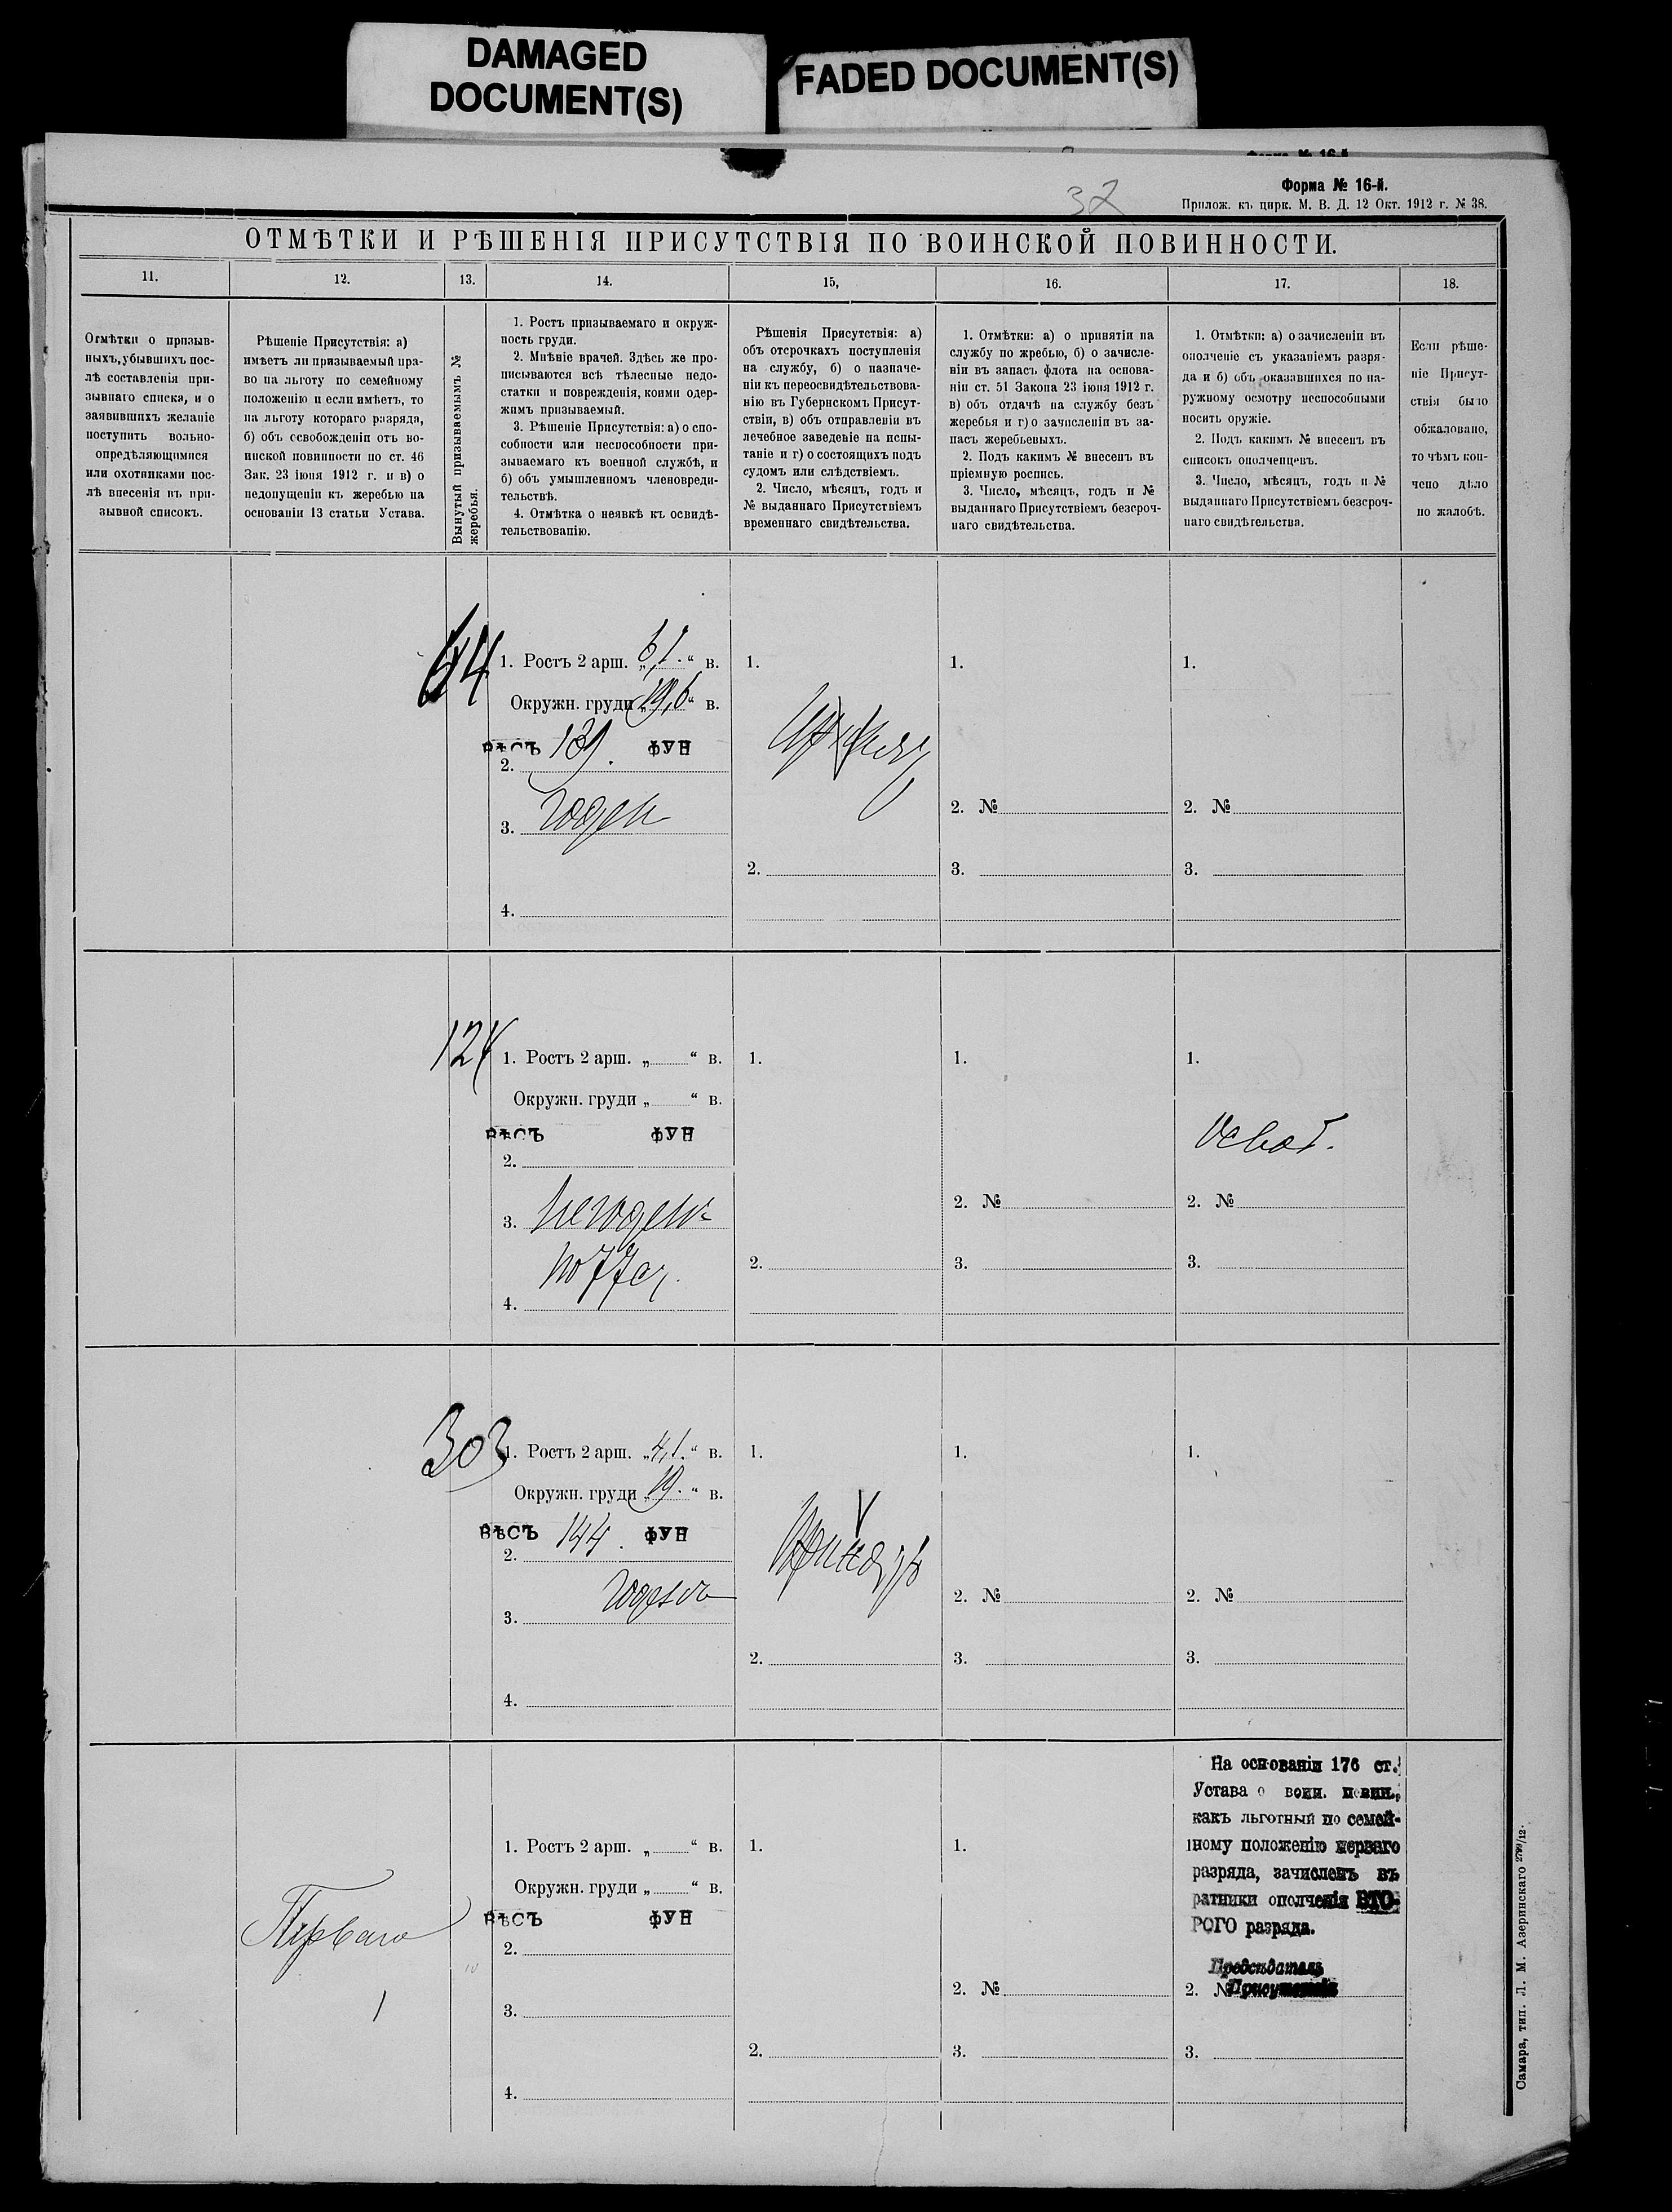 DAMAGED
DOCUMENT(S)
FADED DOCUMENT(S)
37
Форма № 16-й.
Прилож. къ цирк. М. В. Д. 12 Окт. 1912 г. № 38.
ОТМѢТКИ И РѢШЕНІЯ ПРИСУТСТВІЯ ПО ВОИНСКОЙ ПОВИННОСТИ.
11.
12.
13.
14.
15,
16.
17.
18.
Отмѣтки о призыв-
ныхъ, убывшихъ пос-
лѣ составленія при-
зывнаго списка, и о
заявившихъ желаніе
поступить вольно-
опредѣляющимися
или охотниками пос-
лѣ внесенія въ при-
зывной списокъ.
Рѣшеніе Присутствія: а)
имѣетъ ли призываемый пра-
во на льготу по семейному
положенію и если имѣетъ, то
на льготу котораго разряда,
б) объ освобожденіи отъ во-
инской повинности по ст. 46
Зак. 23 іюня 1912 г. и в) о
недопущеніи къ жеребью на
основаніи 13 статьи Устава.
Вынутый призываемымъ №
жеребья.
1. Ростъ призываемаго и окруж-
ность груди.
2. Мнѣніе врачей. Здѣсь же про-
писываются всѣ тѣлесные недо-
статки и поврежденія, коими одер-
жимъ призываемый.
3. Рѣшеніе Присутствія: а) о спо-
собности или неспособности при-
зываемаго къ военной службѣ, и
б) объ умышленномъ членовреди-
тельствѣ.
4. Отмѣтка о неявкѣ къ освидѣ-
тельствованію.
Рѣшенія Присутствія: а)
объ отсрочкахъ поступленія
на службу, б) о назначе-
ніи къ переосвидѣтельствова-
нію въ Губернскомъ Присут-
ствіи, в) объ отправленіи въ
лечебное заведеніе на испы-
таніе и г) о состоящихъ подъ
судомъ или слѣдствіемъ.
2. Число, мѣсяцъ, годъ и
№ выданнаго Присутствіемъ
временнаго свидѣтельства.
1. Отмѣтки: а) о принятіи на
службу по жребью, б) о зачисле-
ніи въ запасъ флота на основа-
ніи ст. 51 Закона 23 іюня 1912 г.
в) объ отдачѣ на службу безъ
жеребья и г) о зачисленіи въ за-
пасъ жеребьевыхъ.
2. Подъ какимъ № внесенъ въ
пріемную роспись.
3. Число, мѣсяцъ, годъ и №
выданнаго Присутствіемъ безсроч-
наго свидѣтельства.
1. Отмѣтки: а) о зачисленіи въ
ополченіе съ указаніемъ разря-
да и б) объ оказавшихся по на-
ружному осмотру неспособными
носить оружіе.
2. Подъ какимъ № внесенъ въ
списокъ ополченцевъ.
3. Число, мѣсяцъ, годъ и №
выданнаго Присутствіемъ безсроч-
наго свидѣтельства.
Если рѣше-
ніе Присут-
ствія было
обжаловано,
то чѣмъ кон-
чено дѣло
по жалобѣ.
1. Ростъ 2 арш. „6,1.“ в.
Окружн. груди „19,6“ в.
ВѢСЪ 139. ФУН
2.
3. годен
4.
1.
2.
1.
2. №
3.
1.
2. №
3.
124
1. Ростъ 2 арш. „ “ в.
Окружн. груди „ “ в.
ВѢСЪ ФУН
2.
3. негоденъ
по 77 ст.
4.
1.
2.
1.
2. №
3.
1.
Освоб.
2. №
3.
303
1. Ростъ 2 арш. „4,1.“ в.
Окружн. груди „19.“ в.
ВѢСЪ 144. ФУН
2.
3. годенъ
4.
1.
2.
1.
2. №
3.
1.
2. №
3.
Перваго
1
1. Ростъ 2 арш. „ “ в.
Окружн. груди „ “ в.
ВѢСЪ ФУН
2.
3.
4.
1.
2.
1.
2. №
3.
На основаніи 176 ст.
Устава о воин. повин.,
какъ льготный по семей-
ному положенію перваго
разряда, зачисленъ въ
ратники ополченія ВТО-
РОГО разряда.
Предсѣдатель
2. № Присутствія
3.
Самара, тип. Л. М. Азеринскаго 2799/12.